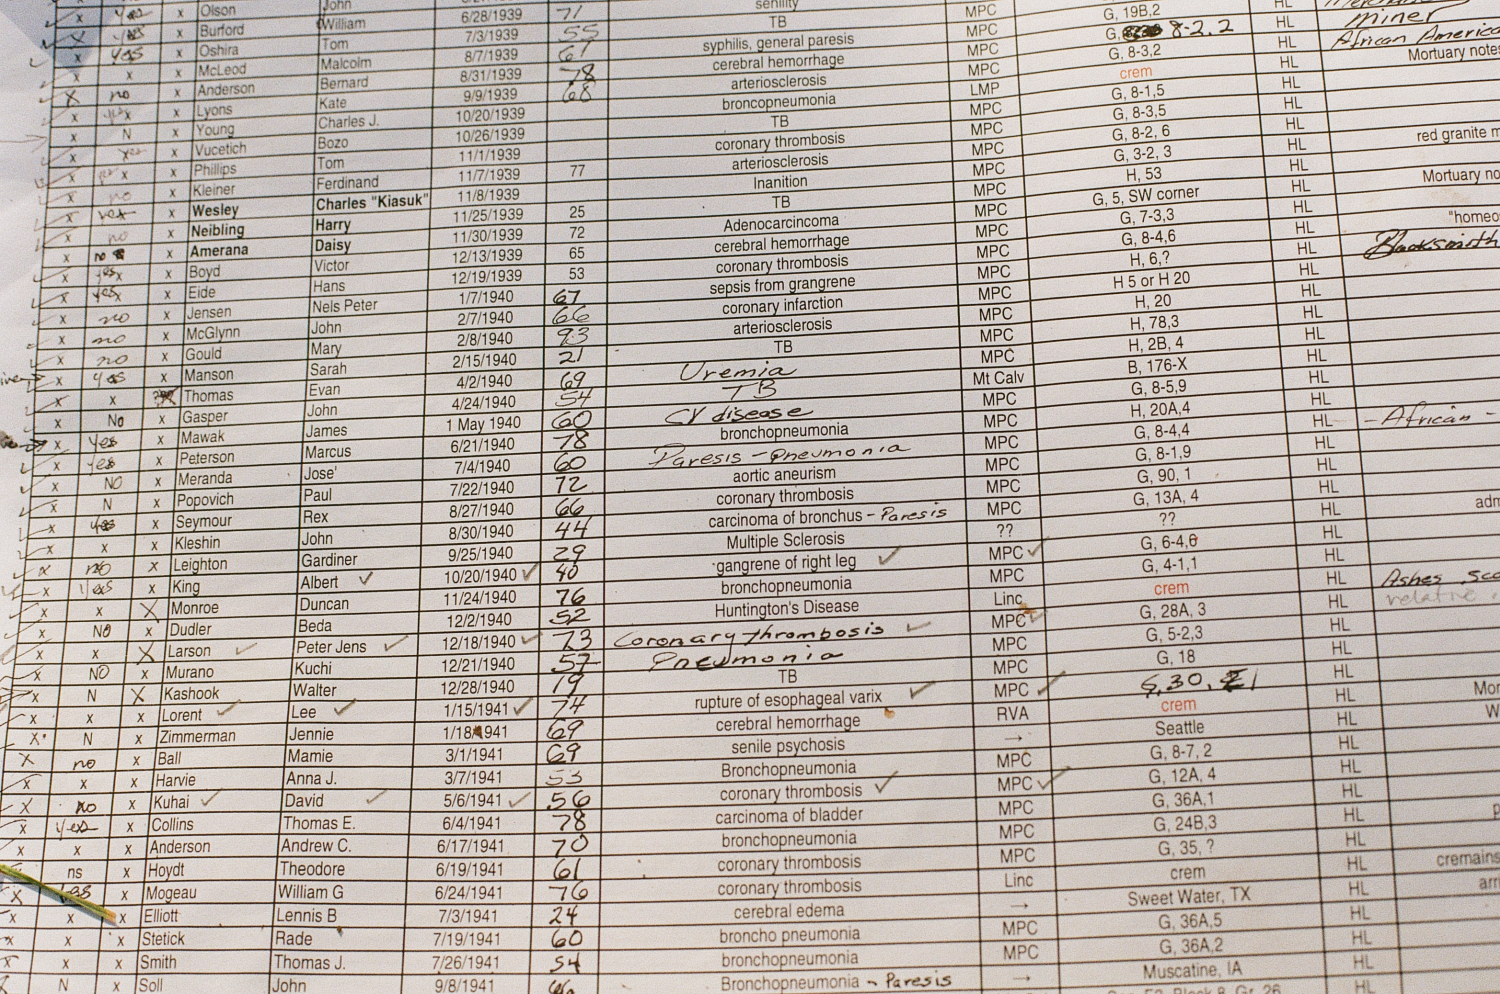 x Yes x Olson John
x yes x Burford William 6/28/1939 71 senility
x Yes x Oshira Tom 7/3/1939 55 TB MPC
x x x McLeod Malcolm 8/7/1939 67 syphilis, general paresis MPC G, 19B,2 HL
x no x Anderson Bernard 8/31/1939 78 cerebral hemorrhage MPC G, 8-2.2 HL miner
x yes x Lyons Kate 9/9/1939 68 arteriosclerosis MPC G, 8-3,2 HL African America
x N x Young Charles J. 10/20/1939 broncopneumonia LMP crem HL Mortuary notes
x yes x Vucetich Bozo 10/26/1939 TB MPC G, 8-1,5 HL
x x Phillips Tom 11/1/1939 coronary thrombosis MPC G, 8-3,5 HL
x no x Kleiner Ferdinand 11/7/1939 77 arteriosclerosis MPC G, 8-2, 6 HL
x yes x Wesley Charles "Kiasuk" 11/8/1939 Inanition MPC G, 3-2, 3 HL red granite m
x no x Neibling Harry 11/25/1939 25 TB MPC H, 53 HL
x no x Amerana Daisy 11/30/1939 72 Adenocarcinoma MPC G, 5, SW corner HL Mortuary no
x yes x Boyd Victor 12/13/1939 65 cerebral hemorrhage MPC G, 7-3,3 HL
x yes x Eide Hans 12/19/1939 53 coronary thrombosis MPC G, 8-4,6 HL "homeo
x no x Jensen Nels Peter 1/7/1940 67 sepsis from grangrene MPC H, 6,? HL Blacksmith
x no x McGlynn John 2/7/1940 66 coronary infarction MPC H 5 or H 20 HL
x no x Gould Mary 2/8/1940 93 arteriosclerosis MPC H, 20 HL
x yes x Manson Sarah 2/15/1940 21 TB MPC H, 78,3 HL
x x Thomas Evan 4/2/1940 69 Uremia MPC H, 2B, 4 HL
x No x Gasper John 4/24/1940 54 TB Mt Calv B, 176-X HL
x Yes x Mawak James 1 May 1940 60 CV disease MPC G, 8-5,9 HL
x yes x Peterson Marcus 6/21/1940 78 bronchopneumonia MPC H, 20A,4 HL
x NO x Meranda Jose' 7/4/1940 60 Paresis - pneumonia MPC G, 8-4,4 HL - African -
x N x Popovich Paul 7/22/1940 72 aortic aneurism MPC G, 8-1,9 HL
x yes x Seymour Rex 8/27/1940 66 coronary thrombosis MPC G, 90, 1 HL
x x x Kleshin John 8/30/1940 44 carcinoma of bronchus - Paresis MPC G, 13A, 4 HL
x no x Leighton Gardiner 9/25/1940 29 Multiple Sclerosis ?? ?? HL adm
x yes x King Albert ✓ 10/20/1940 ✓ 40 gangrene of right leg ✓ MPC ✓ G, 6-4,6 HL
x x X Monroe Duncan 11/24/1940 76 bronchopneumonia MPC G, 4-1,1 HL
x NO x Dudler Beda 12/2/1940 52 Huntington's Disease Linc crem HL Ashes relative
x x X Larson ✓ Peter Jens ✓ 12/18/1940 ✓ 73 Coronary thrombosis ✓ MPC ✓ G, 28A, 3 HL
x NO x Murano Kuchi 12/21/1940 57 Pneumonia MPC G, 5-2,3 HL
x N X Kashook Walter 12/28/1940 19 TB MPC G, 18 HL
x x x Lorent ✓ Lee ✓ 1/15/1941 ✓ 74 rupture of esophageal varix ✓ MPC ✓ HL Mor
x N x Zimmerman Jennie 1/18/1941 69 cerebral hemorrhage RVA crem HL W
x no x Ball Mamie 3/1/1941 69 senile psychosis → Seattle HL
x x x Harvie Anna J. 3/7/1941 53 Bronchopneumonia MPC G, 8-7, 2 HL
x no x Kuhai ✓ David ✓ 5/6/1941 ✓ 56 coronary thrombosis ✓ MPC ✓ G, 12A, 4 HL
x yes x Collins Thomas E. 6/4/1941 78 carcinoma of bladder MPC G, 36A,1 HL
x x x Anderson Andrew C. 6/17/1941 70 bronchopneumonia MPC G, 24B,3 HL
x ns x Hoydt Theodore 6/19/1941 61 coronary thrombosis MPC G, 35, ? HL
x yes x Mogeau William G 6/24/1941 76 coronary thrombosis Linc crem HL cremains
x x x Elliott Lennis B 7/3/1941 24 cerebral edema → Sweet Water, TX HL
x x x Stetick Rade 7/19/1941 60 broncho pneumonia MPC G, 36A,5 HL
x x x Smith Thomas J. 7/26/1941 54 bronchopneumonia MPC G, 36A,2 HL
N x Soll John 9/8/1941 Bronchopneumonia - Paresis → Muscatine, IA HL